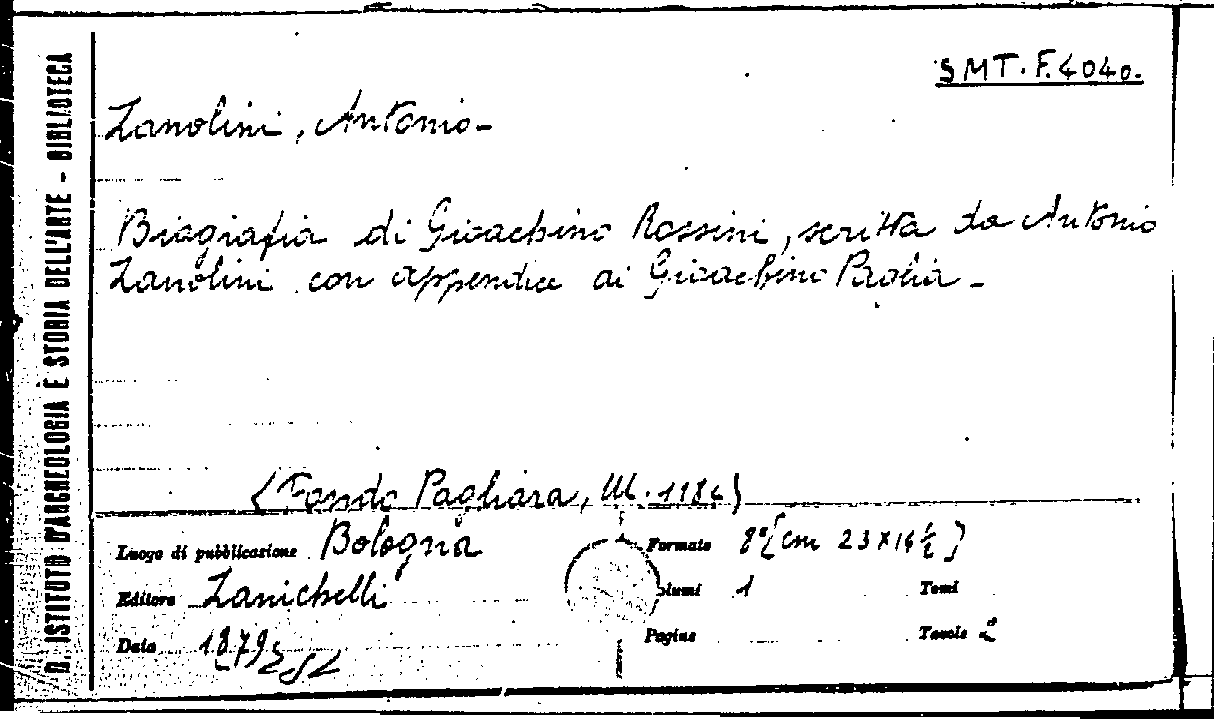 R. ISTITUTO D'ARCHEOLOGIA E STORIA DELL'ARTE - BIBLIOTECA
SMT. F. 4040.
Zanolini, Antonio-
Biografia di Gioachino Rossini, scritta da Antonio
Zanolini con appendice di Gioachino Paglia -
(Fondo Pagliara, M. 1184)
Luogo di pubblicazione Bologna
Formato 8º [cm 23 x 16 ½]
Editore Zanichelli
Volumi 1
Tomi
Data 1879
Pagine
Tavole 2